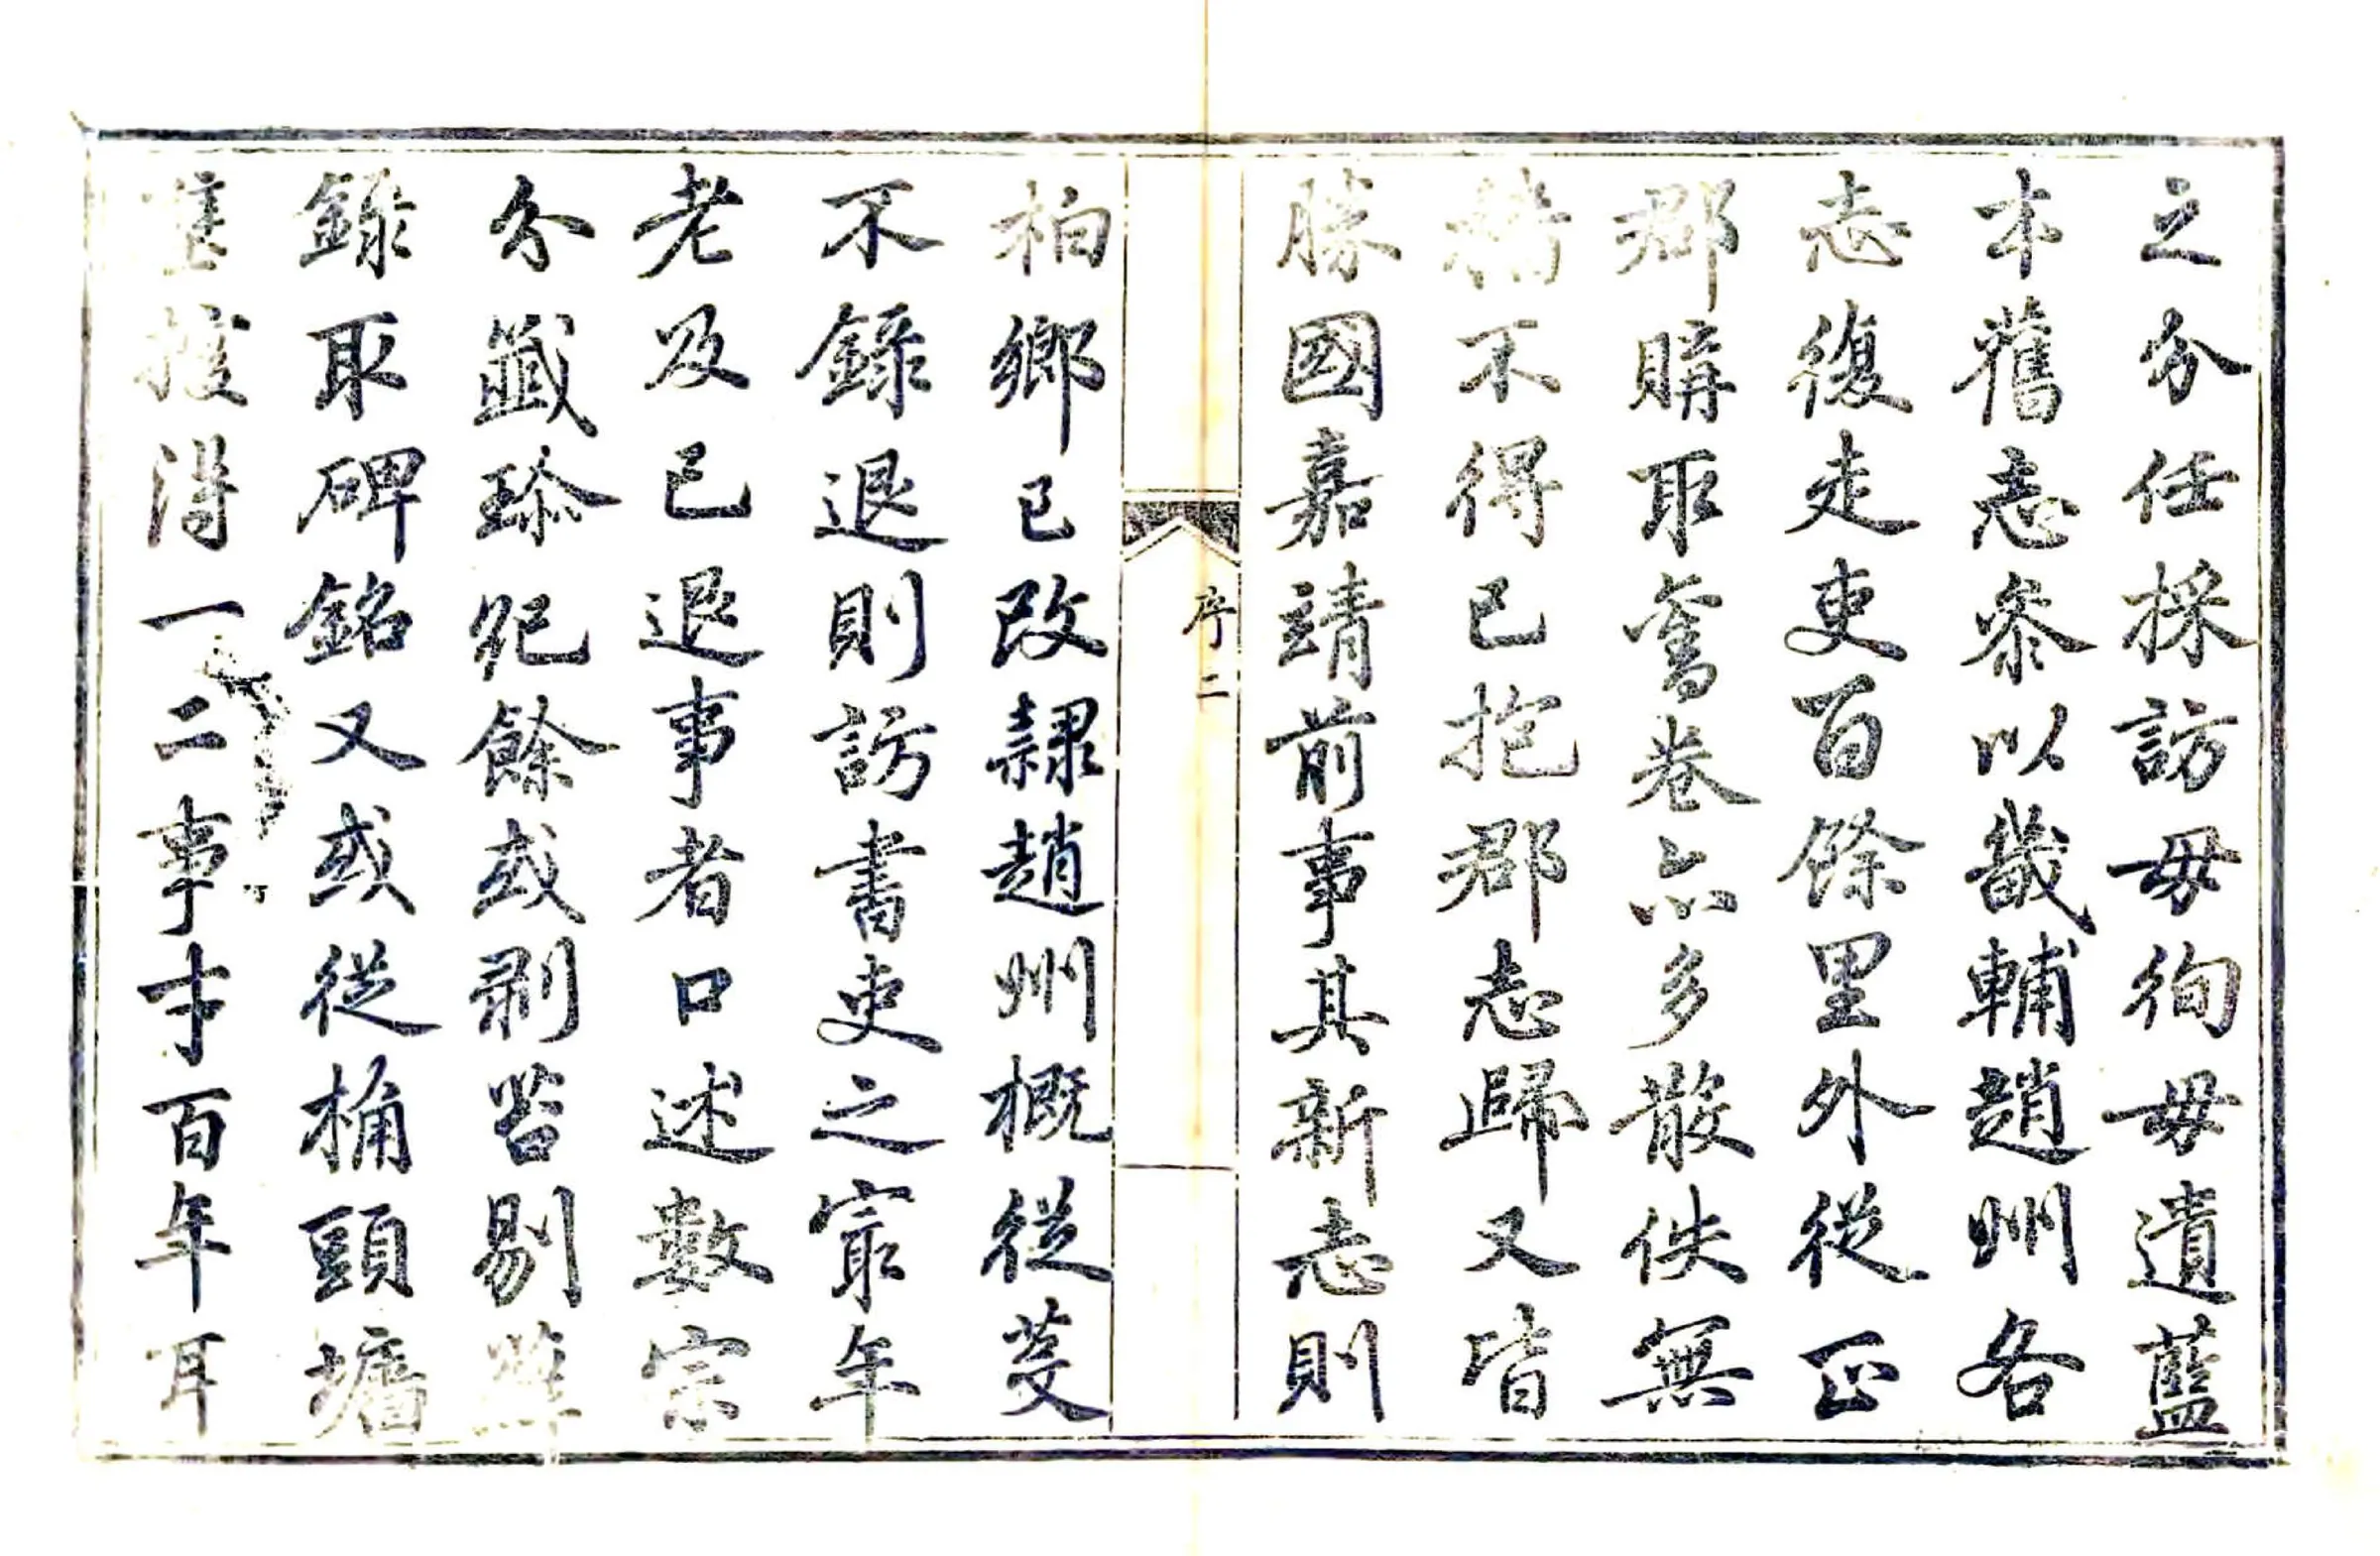 之分任採訪毋徇毋遺藍
本舊志參以畿輔趙州各
志復走吏百餘里外從正
郡購取舊卷亦多散佚無
不得已抱郡志歸又皆
勝國嘉靖前事其新志則
序二
柏鄉已改隸趙州概從芟
不錄退則訪書吏之賔年
老及已退事者口述數宗
分籤珍紀餘或剥苔剔蘚
錄取碑銘又或從桷頭墻
獲得一二事才百年耳